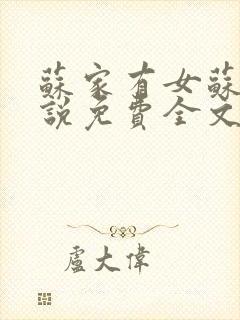 蘇家有女蘇
說免費全文
盧大偉